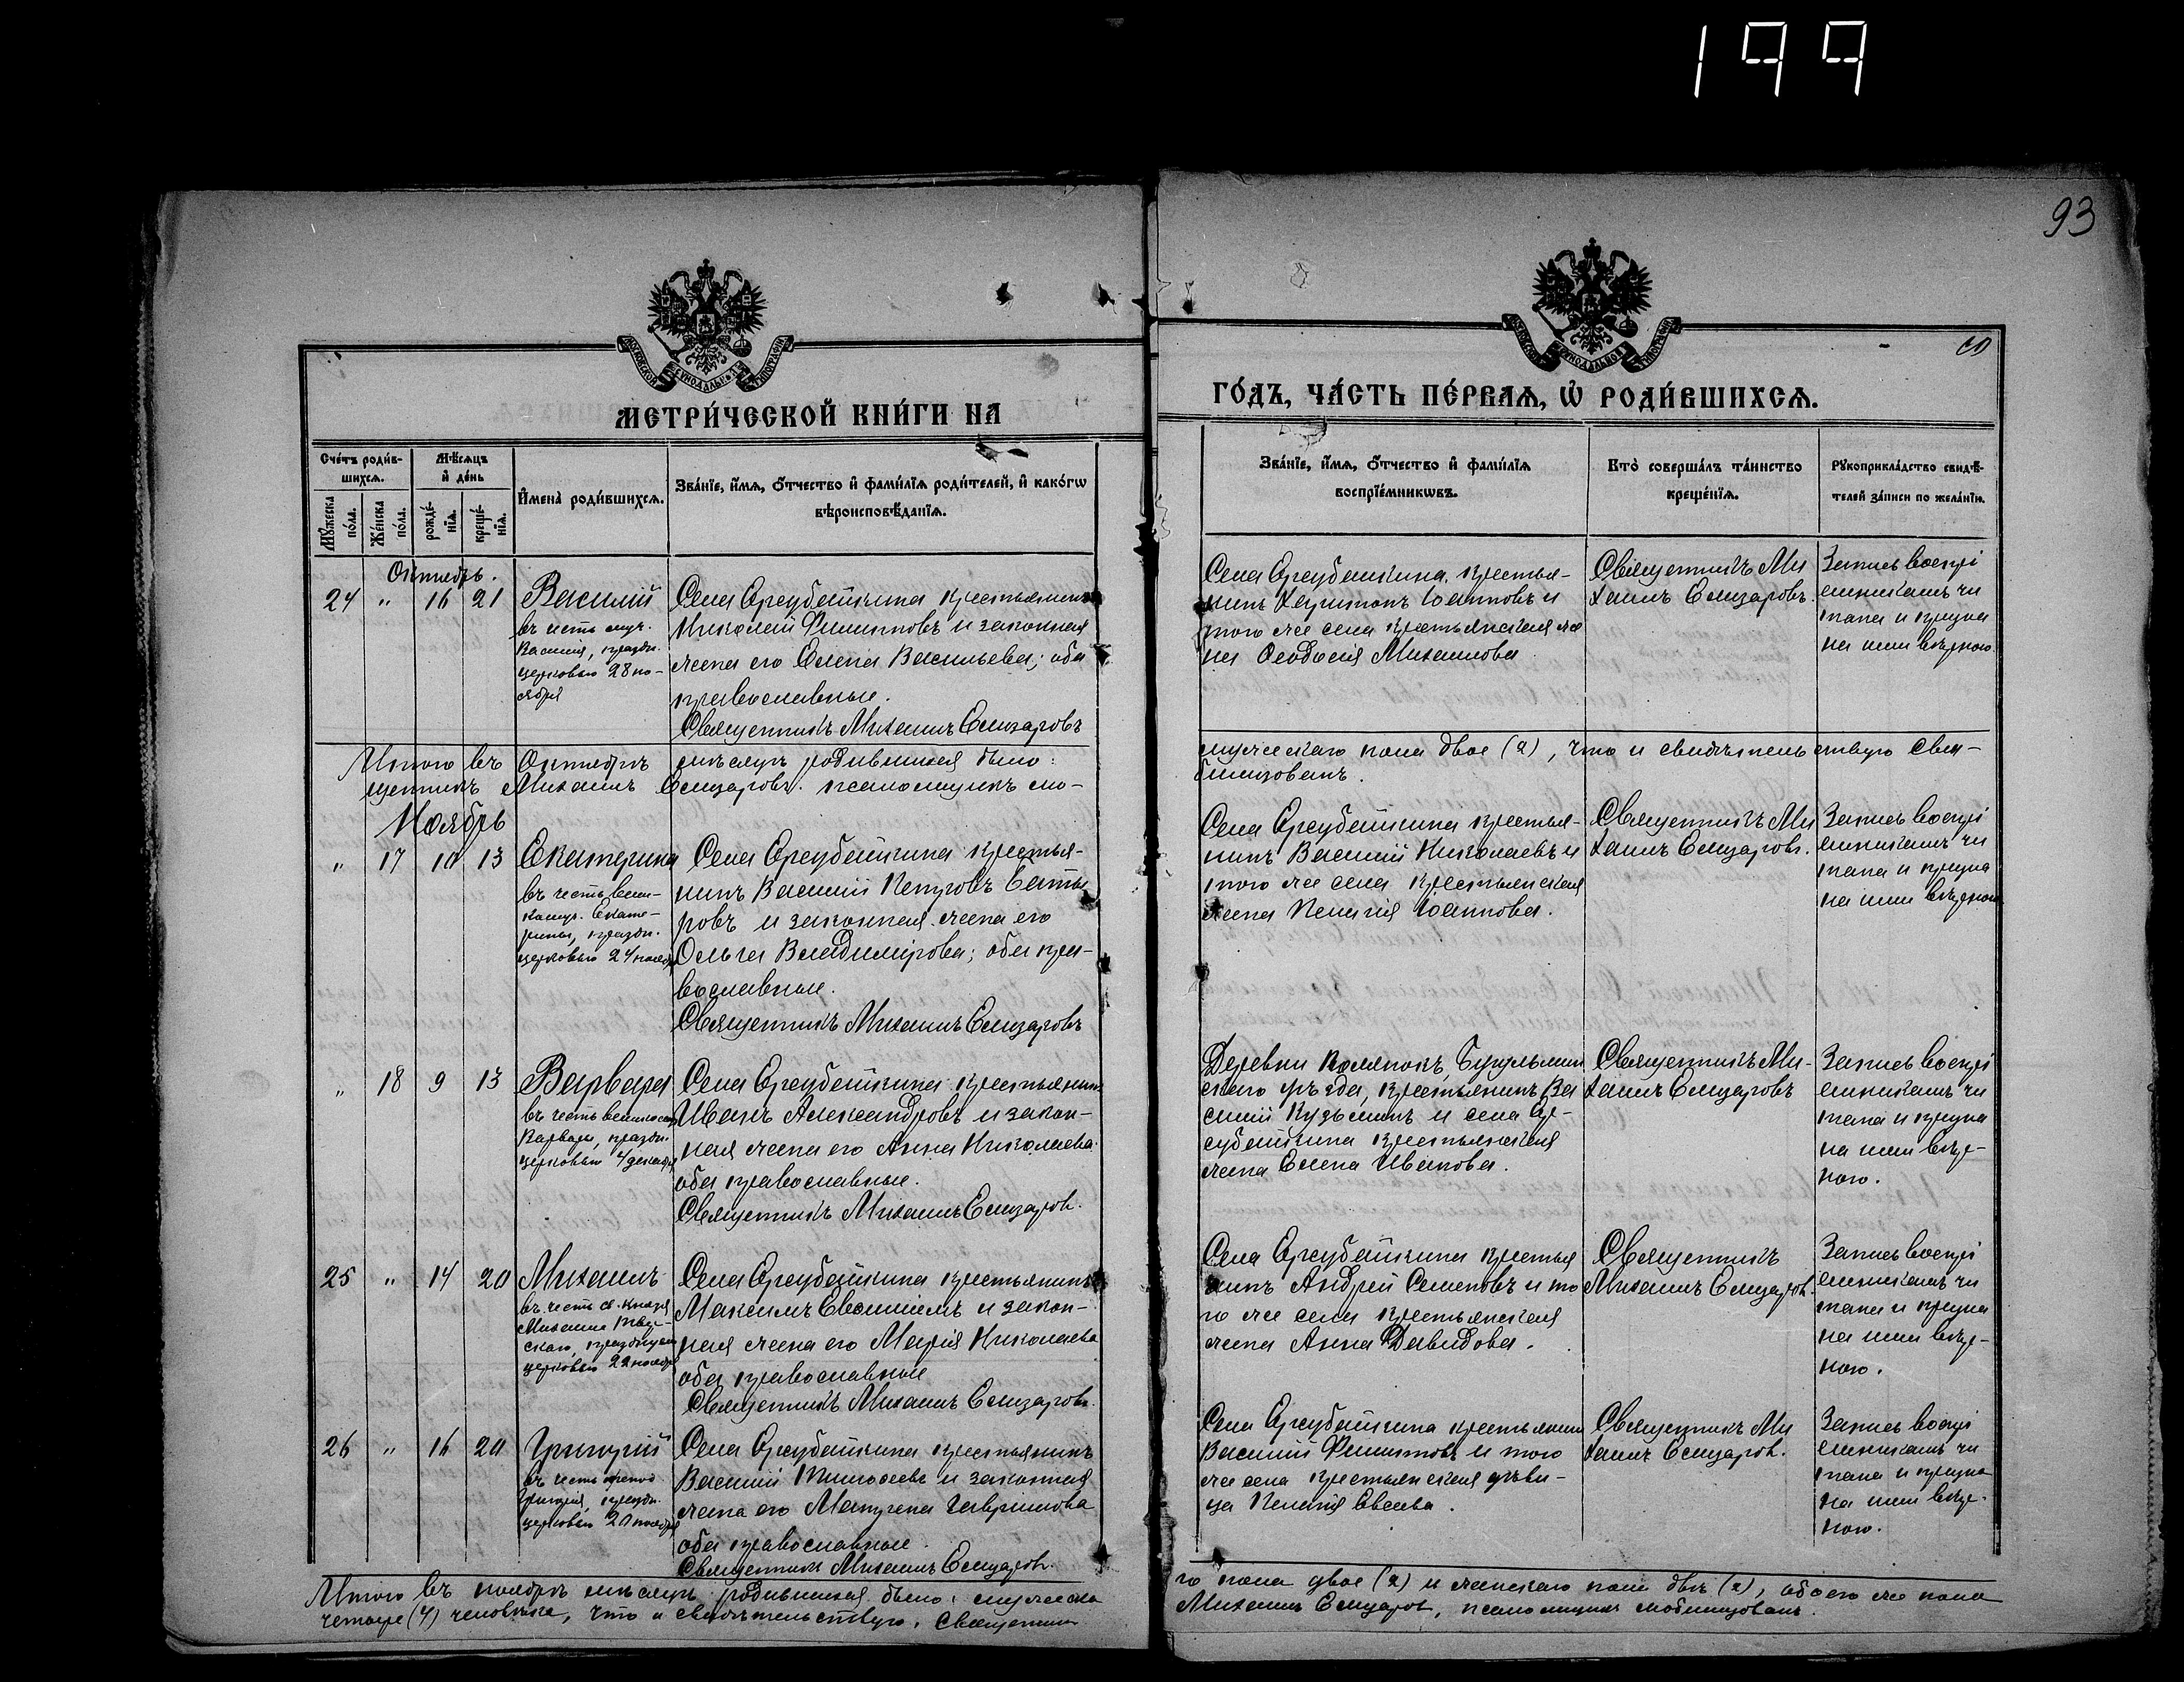 199
93
МЕТРИ́ЧЕСКОЙ КНИ́ГИ НА
ГО́ДЪ, ЧА́СТЬ ПЕ́РВАѦ, Ѡ҆ РОДИ́ВШИХСѦ.
Сче́тъ роди́в-
шихсѧ.
Мѣ́сѧцъ
и҆ де́нь
Мꙋ́жеска
по́ла.
Же́нска
по́ла.
рожде́-
нїѧ.
креще́-
нїѧ.
И҆мена̀ роди́вшихсѧ.
Зва́нїе, и҆́мѧ, ѻ҆́тчество и҆ фами́лїѧ роди́телей, и҆ како́гѡ
вѣроисповѣ́данїѧ.
Зва́нїе, и҆́мѧ, ѻ҆́тчество и҆ фами́лїѧ
воспрїе́мникѡвъ.
Кто̀ соверша́лъ та́инство
креще́нїѧ.
Рꙋкоприкла́дство свидѣ́-
телей за́писи по жела́нїю.
Октябрь.
24 " 16 21
Василий
въ честь муч.
Василия, праздн.
церковью 28 но-
ября
Села
крестьянинъ
Николай Филипповъ и законная
жена его Елена Васильева; оба
православные.
Священникъ Михаилъ Елизаровъ
Села
крестья-
нинъ Харитонъ Іоанновъ и
того же села крестьянская же
на Ѳеодосія Михаилова
Священникъ Ми
хаилъ Елизаровъ.
Запись воспрі
емникамъ чи
тана и призна
на ими вѣрною
Итого въ Октябрѣ мѣсяцѣ родившихся было:
мужескаго пола двое (2), что и свидѣтельствую Свя-
щенникъ Михаилъ Елизаровъ. псаломщикъ мо-
билизованъ.
Ноябрь
" 17 10 13
Екатерина
въ честь вели-
комуч. Екате-
рины, праздн.
церковью 24 ноября
Села
крестья-
нинъ Василий Петровъ Баты
ровъ и законная жена его
Ольга Владимірова; оба пра-
вославные.
Священникъ Михаилъ Елизаровъ
Села
крестья-
нинъ Василий Николаевъ и
того же села крестьянская
жена Пелагія Іоаннова.
Священникъ Ми
хаилъ Елизаровъ.
Запись воспрі
емникамъ чи
тана и призна
на ими вѣрною
" 18 9 13
Варвара
въ честь великомуч
Варвары, праздн.
церковью 4 декабря
Села
крестьянинъ
Иванъ Александровъ и закон-
ная жена его Анна Николаева
оба православные.
Священникъ Михаилъ Елизаров.
Деревни
Бугульмин
скаго уѣзда, крестьянинъ Ва
силий Кузьминъ и села
крестьянская
жена Елена Иванова.
Священникъ Ми-
хаилъ Елизаровъ
Запись воспрі
емникамъ чи
тана и призна
на ими вѣр-
ною.
25 " 14 20
Михаилъ
въ честь св. князя
Михаила Твер-
скаго, празднуем
церковью 22 ноября
Села
крестьянинъ
Максимъ
и закон-
ная жена его Марія Николаева
оба православные
Священникъ Михаилъ Елизаровъ.
Села
крестья
нинъ Андрей Семеновъ и то
го же села крестьянская
жена Анна Давидова.
Священникъ
Михаилъ Елизаров.
Запись воспрі
емникамъ чи
тана и призна
на ими вѣр-
ною.
26 " 16 20
Григорий
въ честь препод
Григорія, праздн.
церковью 20 ноября
Села
крестьянинъ
Василий Тимофеевъ и законная
жена его Матрена Гаврилова
оба православные.
Священник Михаилъ Елизаров.
Села
крестьянинъ
Василий Филипповъ и того
же села крестьянская дѣви-
ца Пелагія Евсеева.
Священникъ Ми
хаилъ Елизаров.
Запись воспрі
емникамъ чи
тана и призна
на ими вѣр-
ною.
Итого въ ноябрѣ мѣсяцѣ родившихся было: мужеска
го пола двое (2) и женскаго пола двѣ (2), обоего же пола
четыре (4) человѣка, что и свидѣтельствую. Священник
Михаилъ Елизаров, псаломщик мобилизованъ.